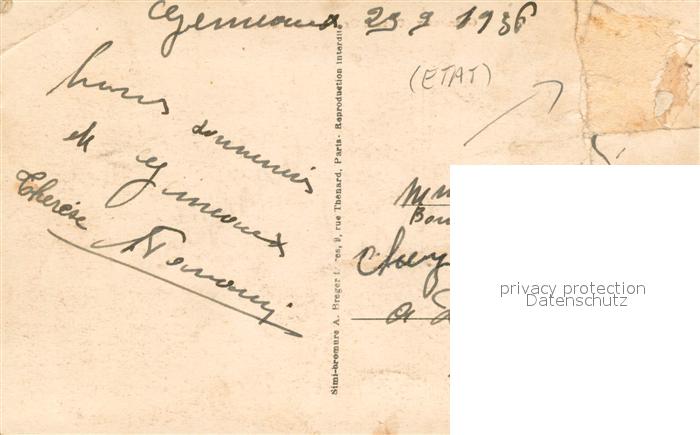 Gemeaux 23 9 1936
(ETAT)
bons souvenirs
de Gemeaux
Thérèse
Simi-bromure A. Breger frères, 9, rue Thenard, Paris - Reproduction interdite
Bou
a
privacy protection
Datenschutz